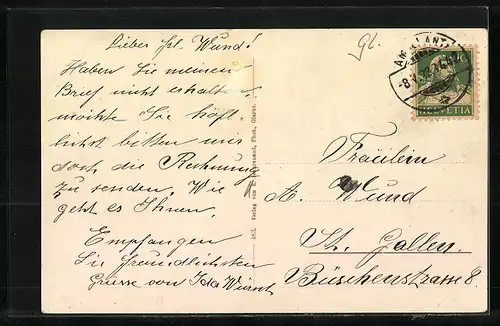 Lieber Frl. Wund!
Haben Sie meinen
Brief nicht erhalten,
möchte Sie höf-
lichst bitten mir
doch die Rechnung
zu senden. Wie
geht es Ihnen.
Empfangen
Sie freundlichsten
Grüsse von Ida Würsch
Verlag von
Phot., Glarus.
Gl.
HELVETIA
Fräulein
A. Wund
St. Gallen.
Büschenstrasse 8.